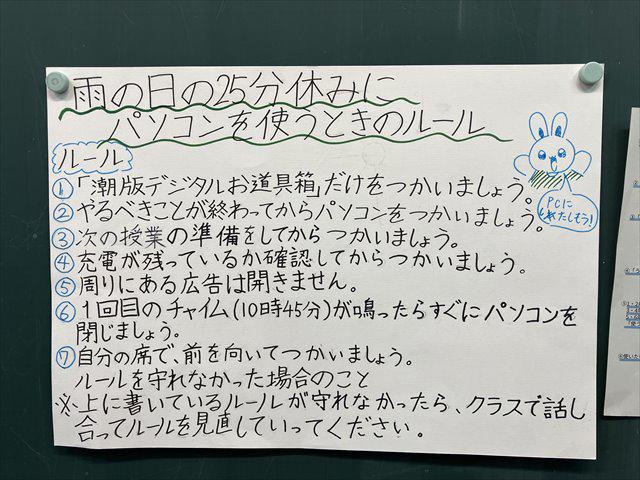 雨の日の25分休みに
パソコンを使うときのルール
ルール
①「潮版デジタルお道具箱」だけをつかいましょう。
②やるべきことが終わってからパソコンをつかいましょう。
③次の授業の準備をしてからつかいましょう。
④充電が残っているか確認してからつかいましょう。
⑤周りにある広告は開きません。
⑥1回目のチャイム(10時45分)が鳴ったらすぐにパソコンを
閉じましょう。
⑦自分の席で、前を向いてつかいましょう。
ルールを守れなかった場合のこと
※上に書いているルールが守れなかったら、クラスで話し
合ってルールを見直していってください。
PCに